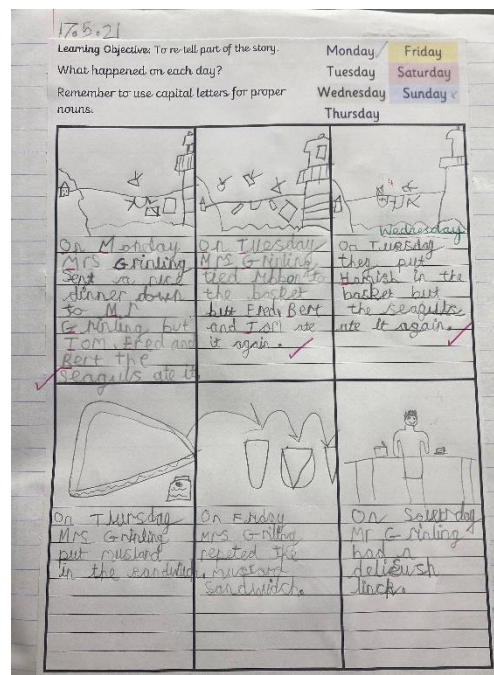 17.5.21
Learning Objective: To re-tell part of the story.
What happened on each day?
Remember to use capital letters for proper
nouns.
Monday Friday
Tuesday Saturday
Wednesday Sunday
Thursday
On Monday
Mrs Grinling
Sent a nice
dinner down
to Mr
Grinling but
Tom, Fred and
Bert the
seagulls ate it
On Tuesday
Mrs Grinling
tied ribbon to
the basket
but Fred, Bert
and Tom ate
it again.
Wednesday
On Tuesday
they put
Hamish in the
basket but
the seagulls
ate it again.
On Thursday
Mrs Grinling
put mustard
in the
On Friday
Mrs
repeted the
mustard
sandwidch.
On
Mr Grinling
had a
delicush